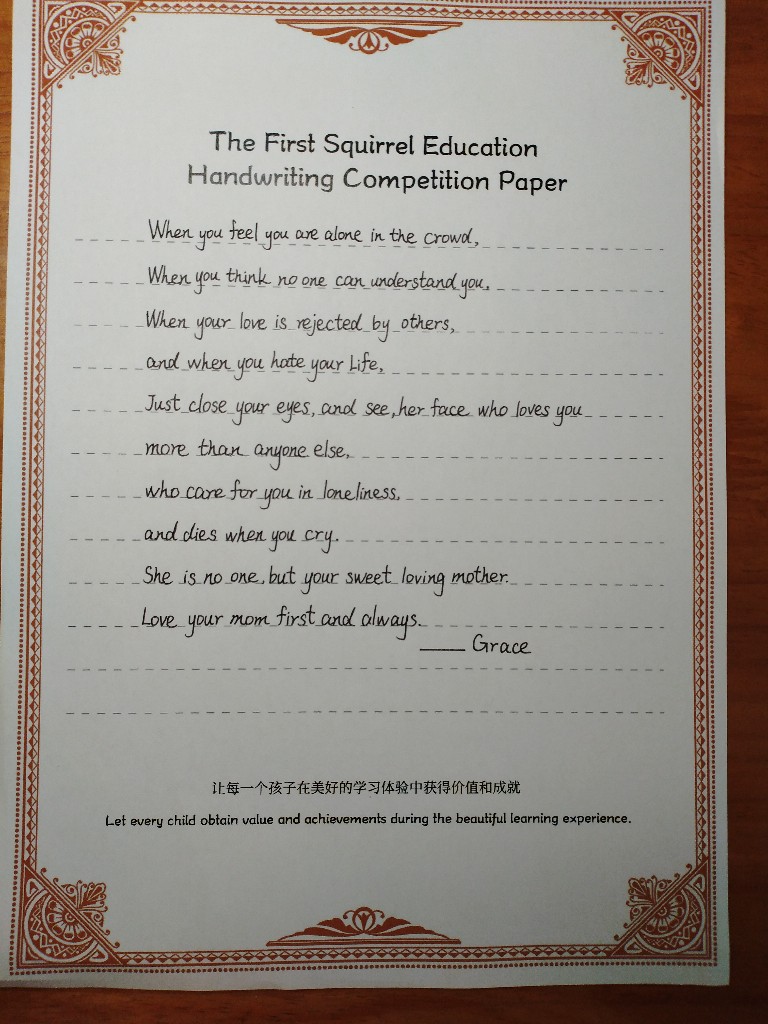 The First Squirrel Education
Handwriting Competition Paper
When you feel you are alone in the crowd,
When you think no one can understand you,
When your love is rejected by others,
and when you hate your Life,
Just close your eyes, and see, her face who loves you
more than anyone else,
who care for you in loneliness,
and dies when you cry.
She is no one, but your sweet loving mother.
Love your mom first and always.
—— Grace
让每一个孩子在美好的学习体验中获得价值和成就
Let every child obtain value and achievements during the beautiful learning experience.